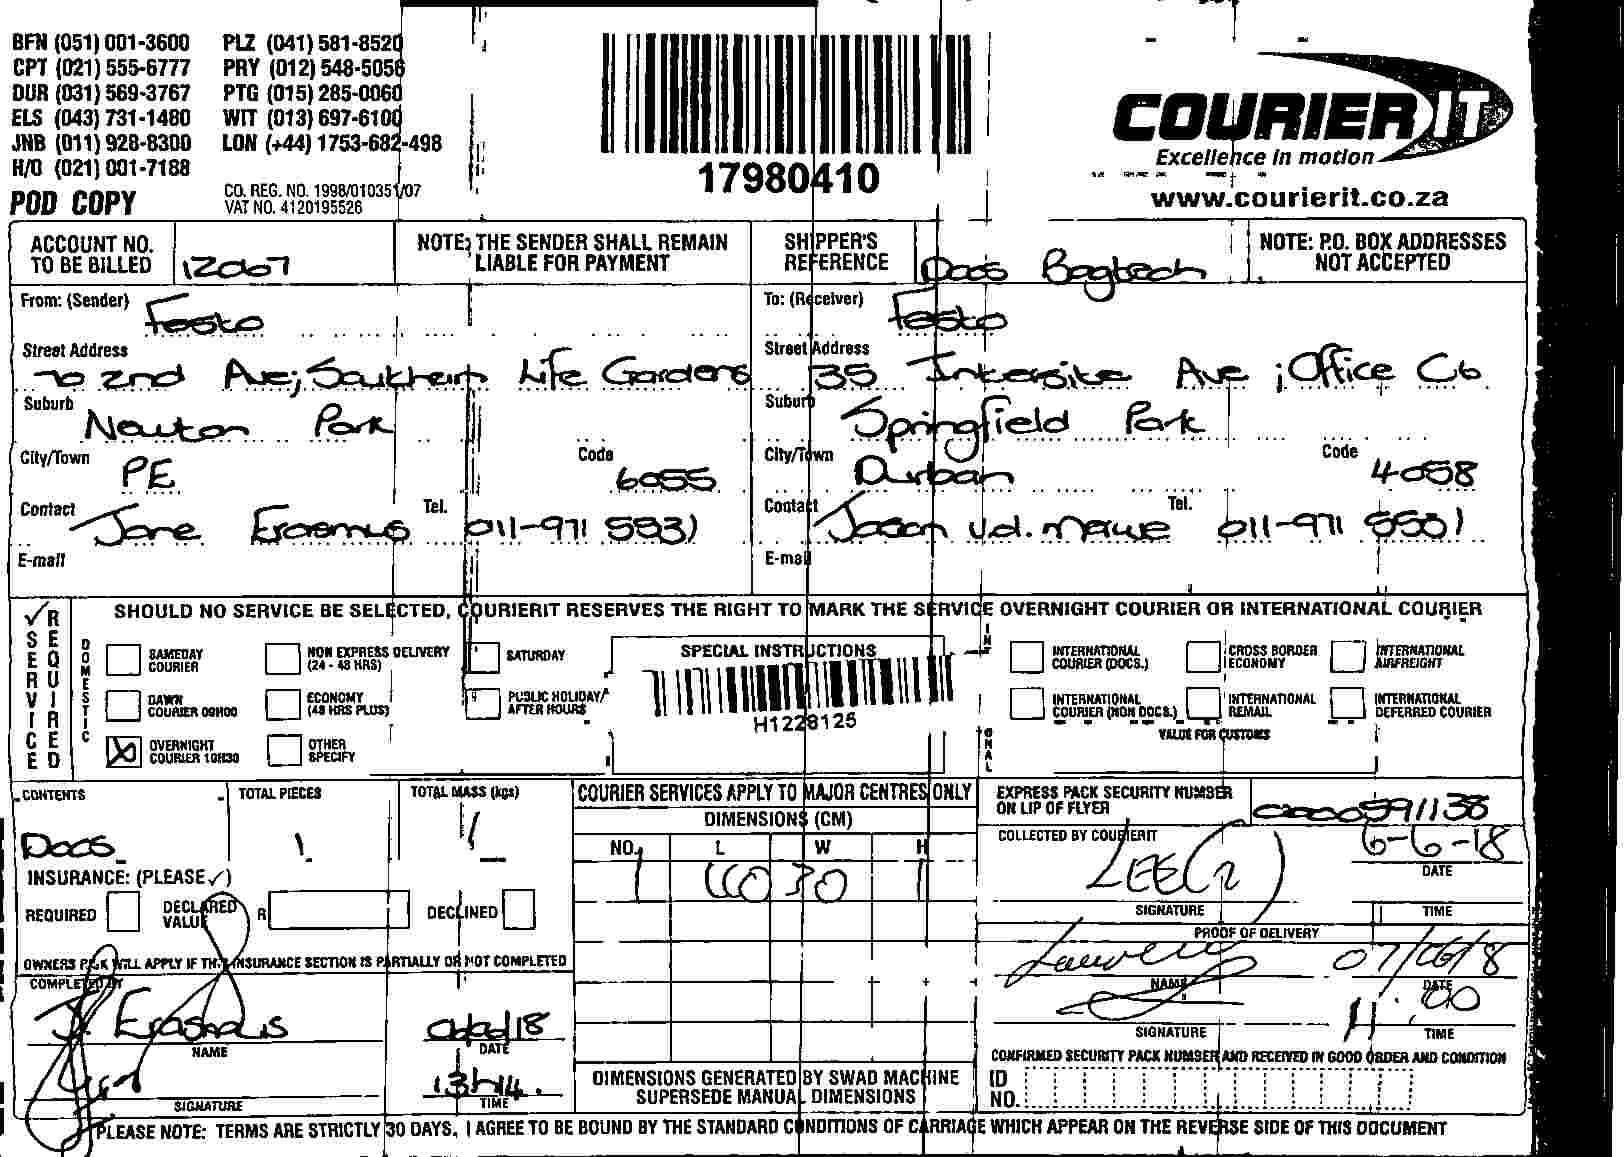 BFN (051) 001-3600 PLZ (041) 581-8520
CPT (021) 555-6777 PRY (012) 548-5056
DUR (031) 569-3767 PTG (015) 285-0060
ELS (043) 731-1480 WIT (013) 697-6100
JNB (011) 928-8300 LON (+44) 1753-682-498
H/O (021) 001-7188
POD COPY
CO. REG. NO. 1998/010351/07
VAT NO. 4120195526
17980410
COURIER IT
Excellence in motion
www.courierit.co.za
ACCOUNT NO. TO BE BILLED 12067
NOTE: THE SENDER SHALL REMAIN LIABLE FOR PAYMENT
SHIPPER'S REFERENCE Docs Bagtech
NOTE: P.O. BOX ADDRESSES NOT ACCEPTED
From: (Sender) Festo
Street Address 70 2nd Ave; Life Gardens
Suburb Newton Park
City/Town PE Code 6055
Contact Jane Erasmus Tel. 011-971 5531
E-mail
To: (Receiver) Festo
Street Address 35 Intersite Ave ; Office C6
Suburb Springfield Park
City/Town Durban Code 4058
Contact Jason v.d. Merwe Tel. 011-971 5531
E-mail
✓ SERVICE REQUIRED
SHOULD NO SERVICE BE SELECTED, COURIERIT RESERVES THE RIGHT TO MARK THE SERVICE OVERNIGHT COURIER OR INTERNATIONAL COURIER
DOMESTIC
SAMEDAY COURIER
NON EXPRESS DELIVERY (24 - 48 HRS)
SATURDAY
DAWN COURIER 09H00
ECONOMY (48 HRS PLUS)
PUBLIC HOLIDAY/ AFTER HOURS
OVERNIGHT COURIER 10H30
OTHER SPECIFY
SPECIAL INSTRUCTIONS
H1228125
INTERNATIONAL COURIER (DOCS.)
CROSS BORDER ECONOMY
INTERNATIONAL AIRFREIGHT
INTERNATIONAL COURIER (NON DOCS.)
INTERNATIONAL REMAIL
INTERNATIONAL DEFERRED COURIER
VALUE FOR CUSTOMS
CONTENTS TOTAL PIECES TOTAL MASS (kgs)
Docs 1 1
INSURANCE: (PLEASE ✓)
REQUIRED DECLARED VALUE R DECLINED
OWNERS RISK WILL APPLY IF THE INSURANCE SECTION IS PARTIALLY OR NOT COMPLETED
COMPLETED BY
J. Erasmus
NAME DATE
13h14
SIGNATURE TIME
COURIER SERVICES APPLY TO MAJOR CENTRES ONLY
DIMENSIONS (CM)
NO. L W H
1 40 30 1
DIMENSIONS GENERATED BY SWAD MACHINE
SUPERSEDE MANUAL DIMENSIONS
EXPRESS PACK SECURITY NUMBER ON LIP OF FLYER 0200591138
COLLECTED BY COURIERIT
LEE 6-6-18
DATE
SIGNATURE TIME
PROOF OF DELIVERY
07/06/18
NAME DATE
11:00
SIGNATURE TIME
CONFIRMED SECURITY PACK NUMBER AND RECEIVED IN GOOD ORDER AND CONDITION
ID NO.
PLEASE NOTE: TERMS ARE STRICTLY 30 DAYS. I AGREE TO BE BOUND BY THE STANDARD CONDITIONS OF CARRIAGE WHICH APPEAR ON THE REVERSE SIDE OF THIS DOCUMENT